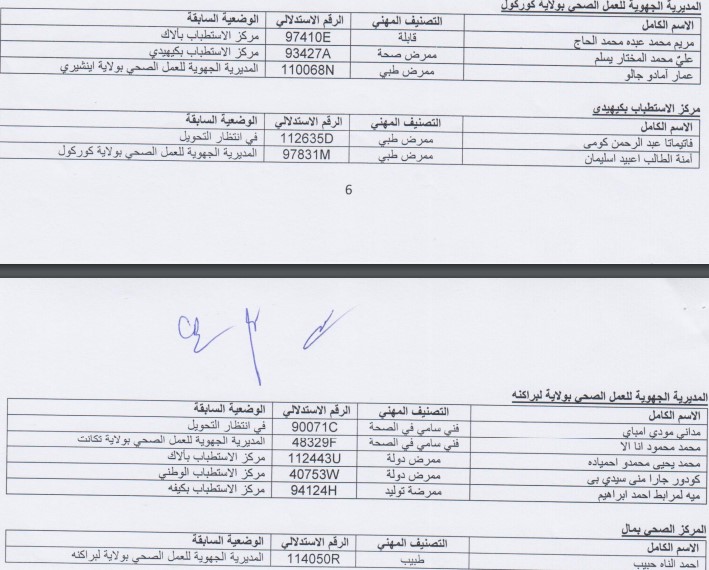 المديرية الجهوية للعمل الصحي بولاية كوركول
الاسم الكامل التصنيف المهني الرقم الاستدلالي الوضعية السابقة
مريم محمد عبده محمد الحاج قابلة 97410E مركز الاستطباب بألاك
علي محمد المختار يسلم ممرض صحة 93427A مركز الاستطباب بكيهيدي
عمار آمادو جالو ممرض طبي 110068N المديرية الجهوية للعمل الصحي بولاية اينشيري
مركز الاستطباب بكيهيدي
الاسم الكامل التصنيف المهني الرقم الاستدلالي الوضعية السابقة
فاتيماتا عبد الرحمن كومى ممرض طبي 112635D في انتظار التحويل
آمنة الطالب اعبيد اسليمان ممرض طبي 97831M المديرية الجهوية للعمل الصحي بولاية كوركول
6
المديرية الجهوية للعمل الصحي بولاية لبراكنه
الاسم الكامل التصنيف المهني الرقم الاستدلالي الوضعية السابقة
مداني مودي امباي فني سامي في الصحة 90071C في انتظار التحويل
محمد محمود انا الا فني سامي في الصحة 48329F المديرية الجهوية للعمل الصحي بولاية تكانت
محمد يحيى محمدو احمياده ممرض دولة 112443U مركز الاستطباب بألاك
كودور جارا منى سيدي بى ممرض دولة 40753W مركز الاستطباب الوطني
ميه لمرابط احمد ابراهيم ممرضة توليد 94124H مركز الاستطباب بكيفه
المركز الصحي بمال
الاسم الكامل التصنيف المهني الرقم الاستدلالي الوضعية السابقة
احمد الناه حبيب طبيب 114050R المديرية الجهوية للعمل الصحي بولاية لبراكنه